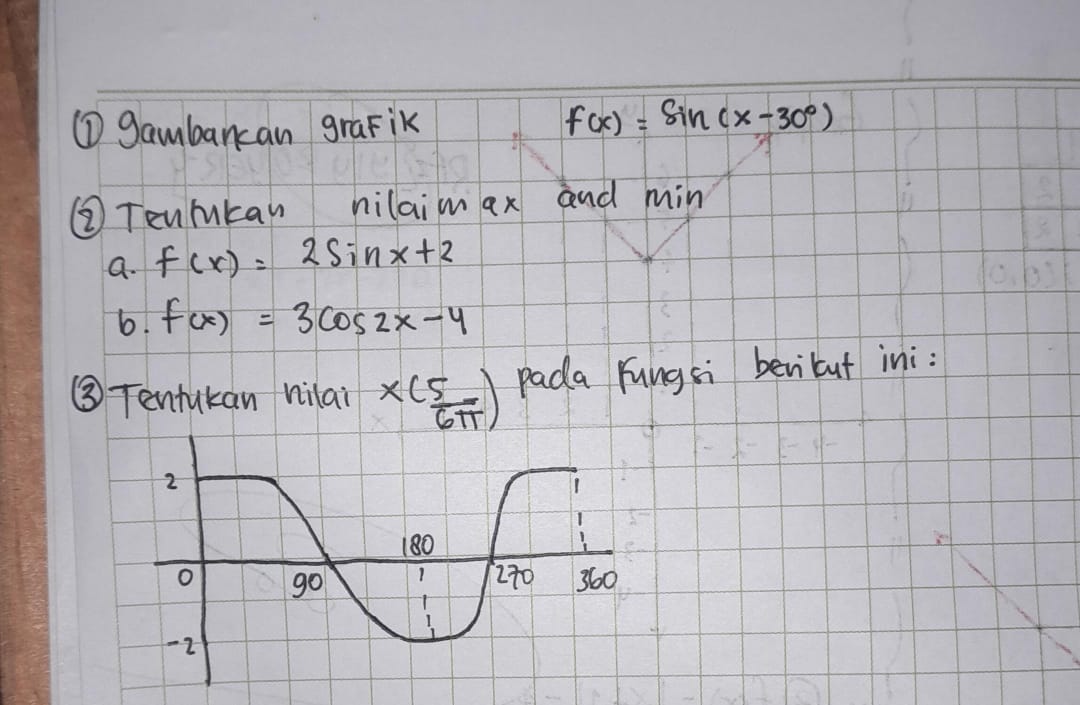 ① gambarkan grafik f(x) = Sin (x-30°)
② Tentukan nilai max and min
a. f(x) = 2 Sin x+2
b. f(x) = 3 Cos 2x-4
③ Tentukan nilai x(5/6π) pada Fungsi berikut ini:
2
180
0 90 270 360
-2